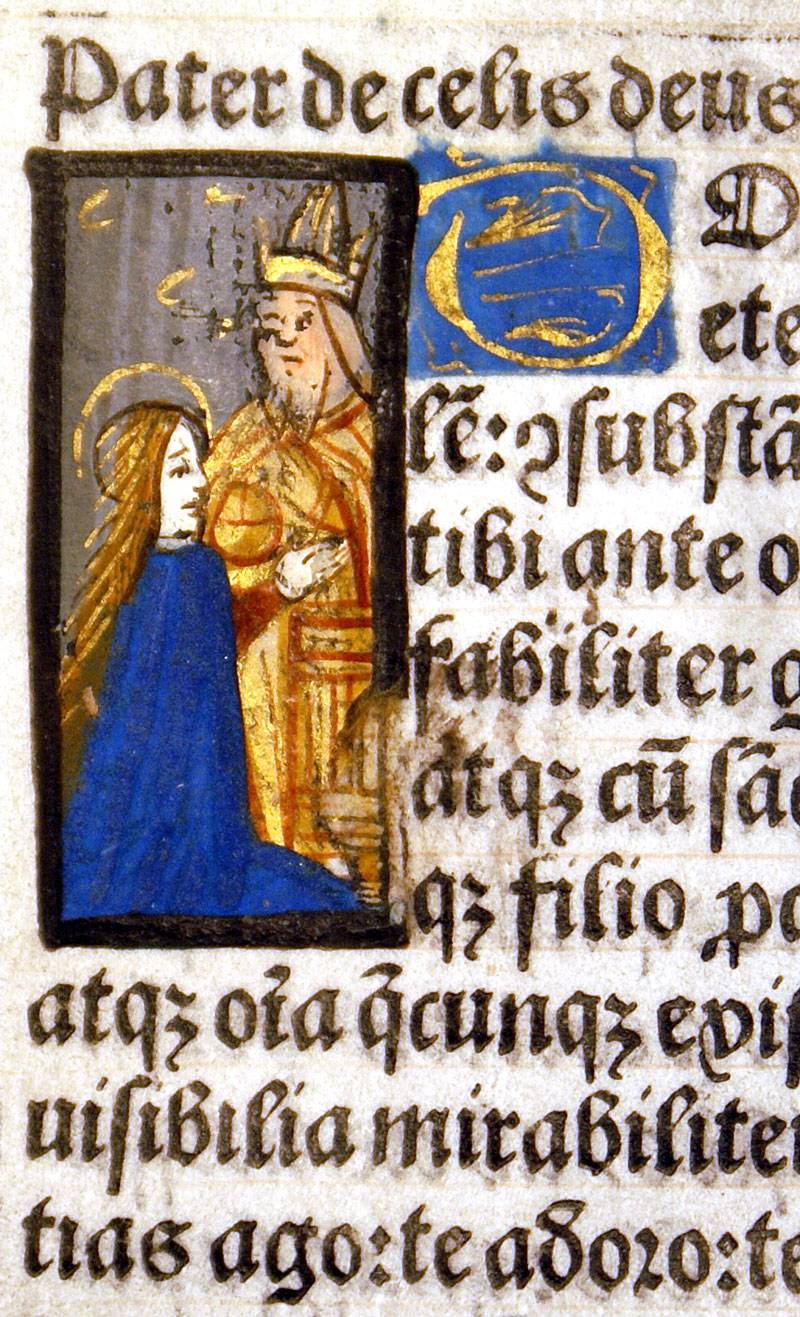 Pater de celis deus
O D
ete
lē: ꝛ ſubſtā
tibi ante o
fabiliter g
atqꝫ cū ſāc
qꝫ filio ꝓc
atqꝫ oīa q̄cunqꝫ exiſ
uiſibilia mirabiliter
tias ago: te adoꝛo: te